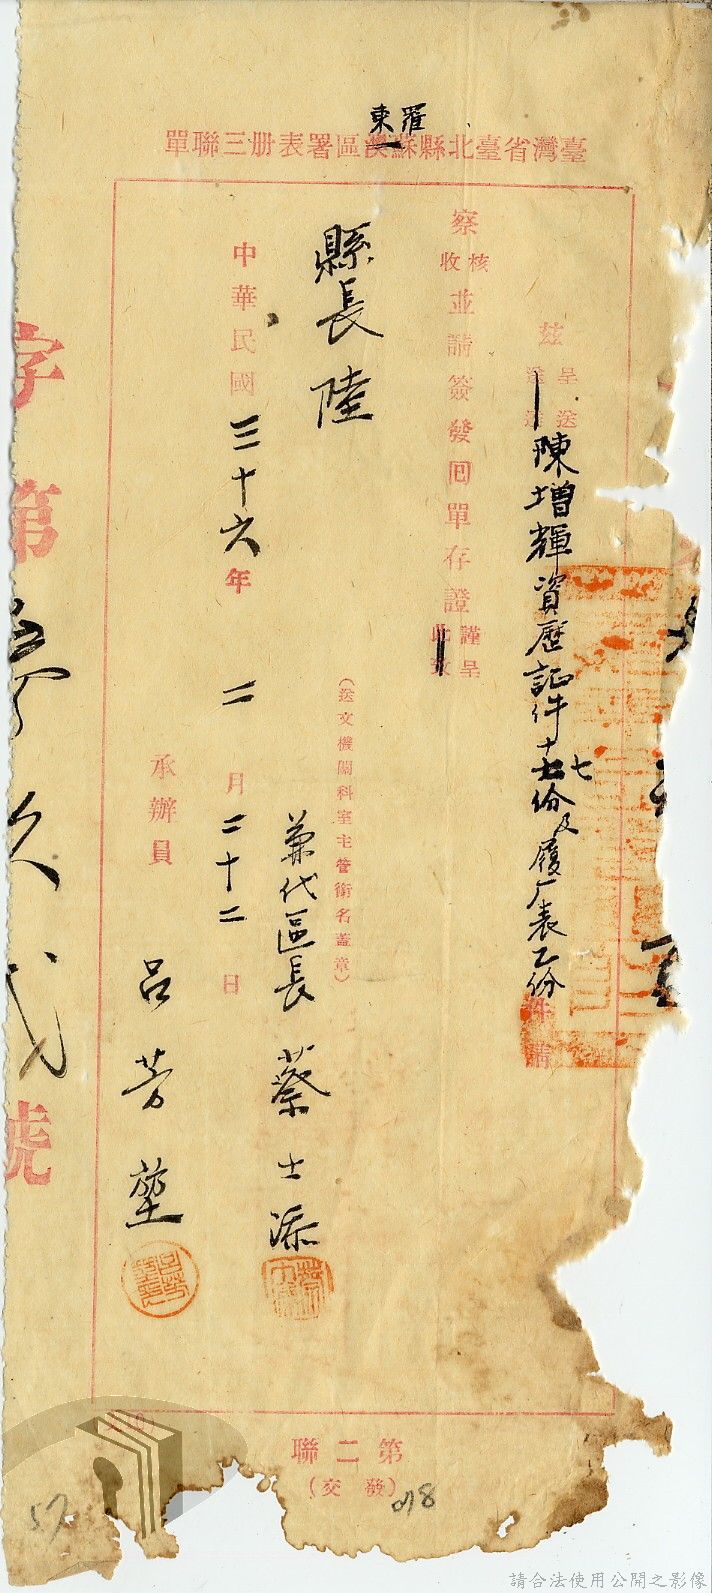 羅東
臺灣省臺北縣蘇澳區署表册三聯單
茲呈送
送達
陳增輝資歷証件十七份及履厂表乙份
件請
察核
收
並請簽發回單存證
謹呈
此致
縣長 陸
(送文機關科室主管銜名蓋章)
兼代區長 蔡士添
中華民國三十六年二月二十二日
承辦員 呂芳䓝
字第 號
第二聯
(發交)
018
57
請合法使用公開之影像